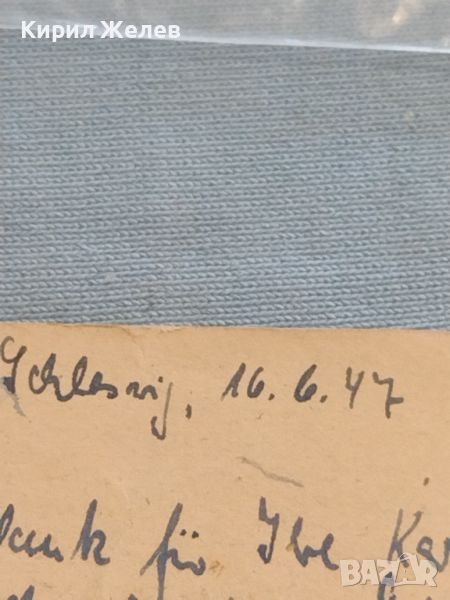 Кирил Желев
Schleswig, 16.6.47
Dank für Ihre Kar
BAZAR
bg